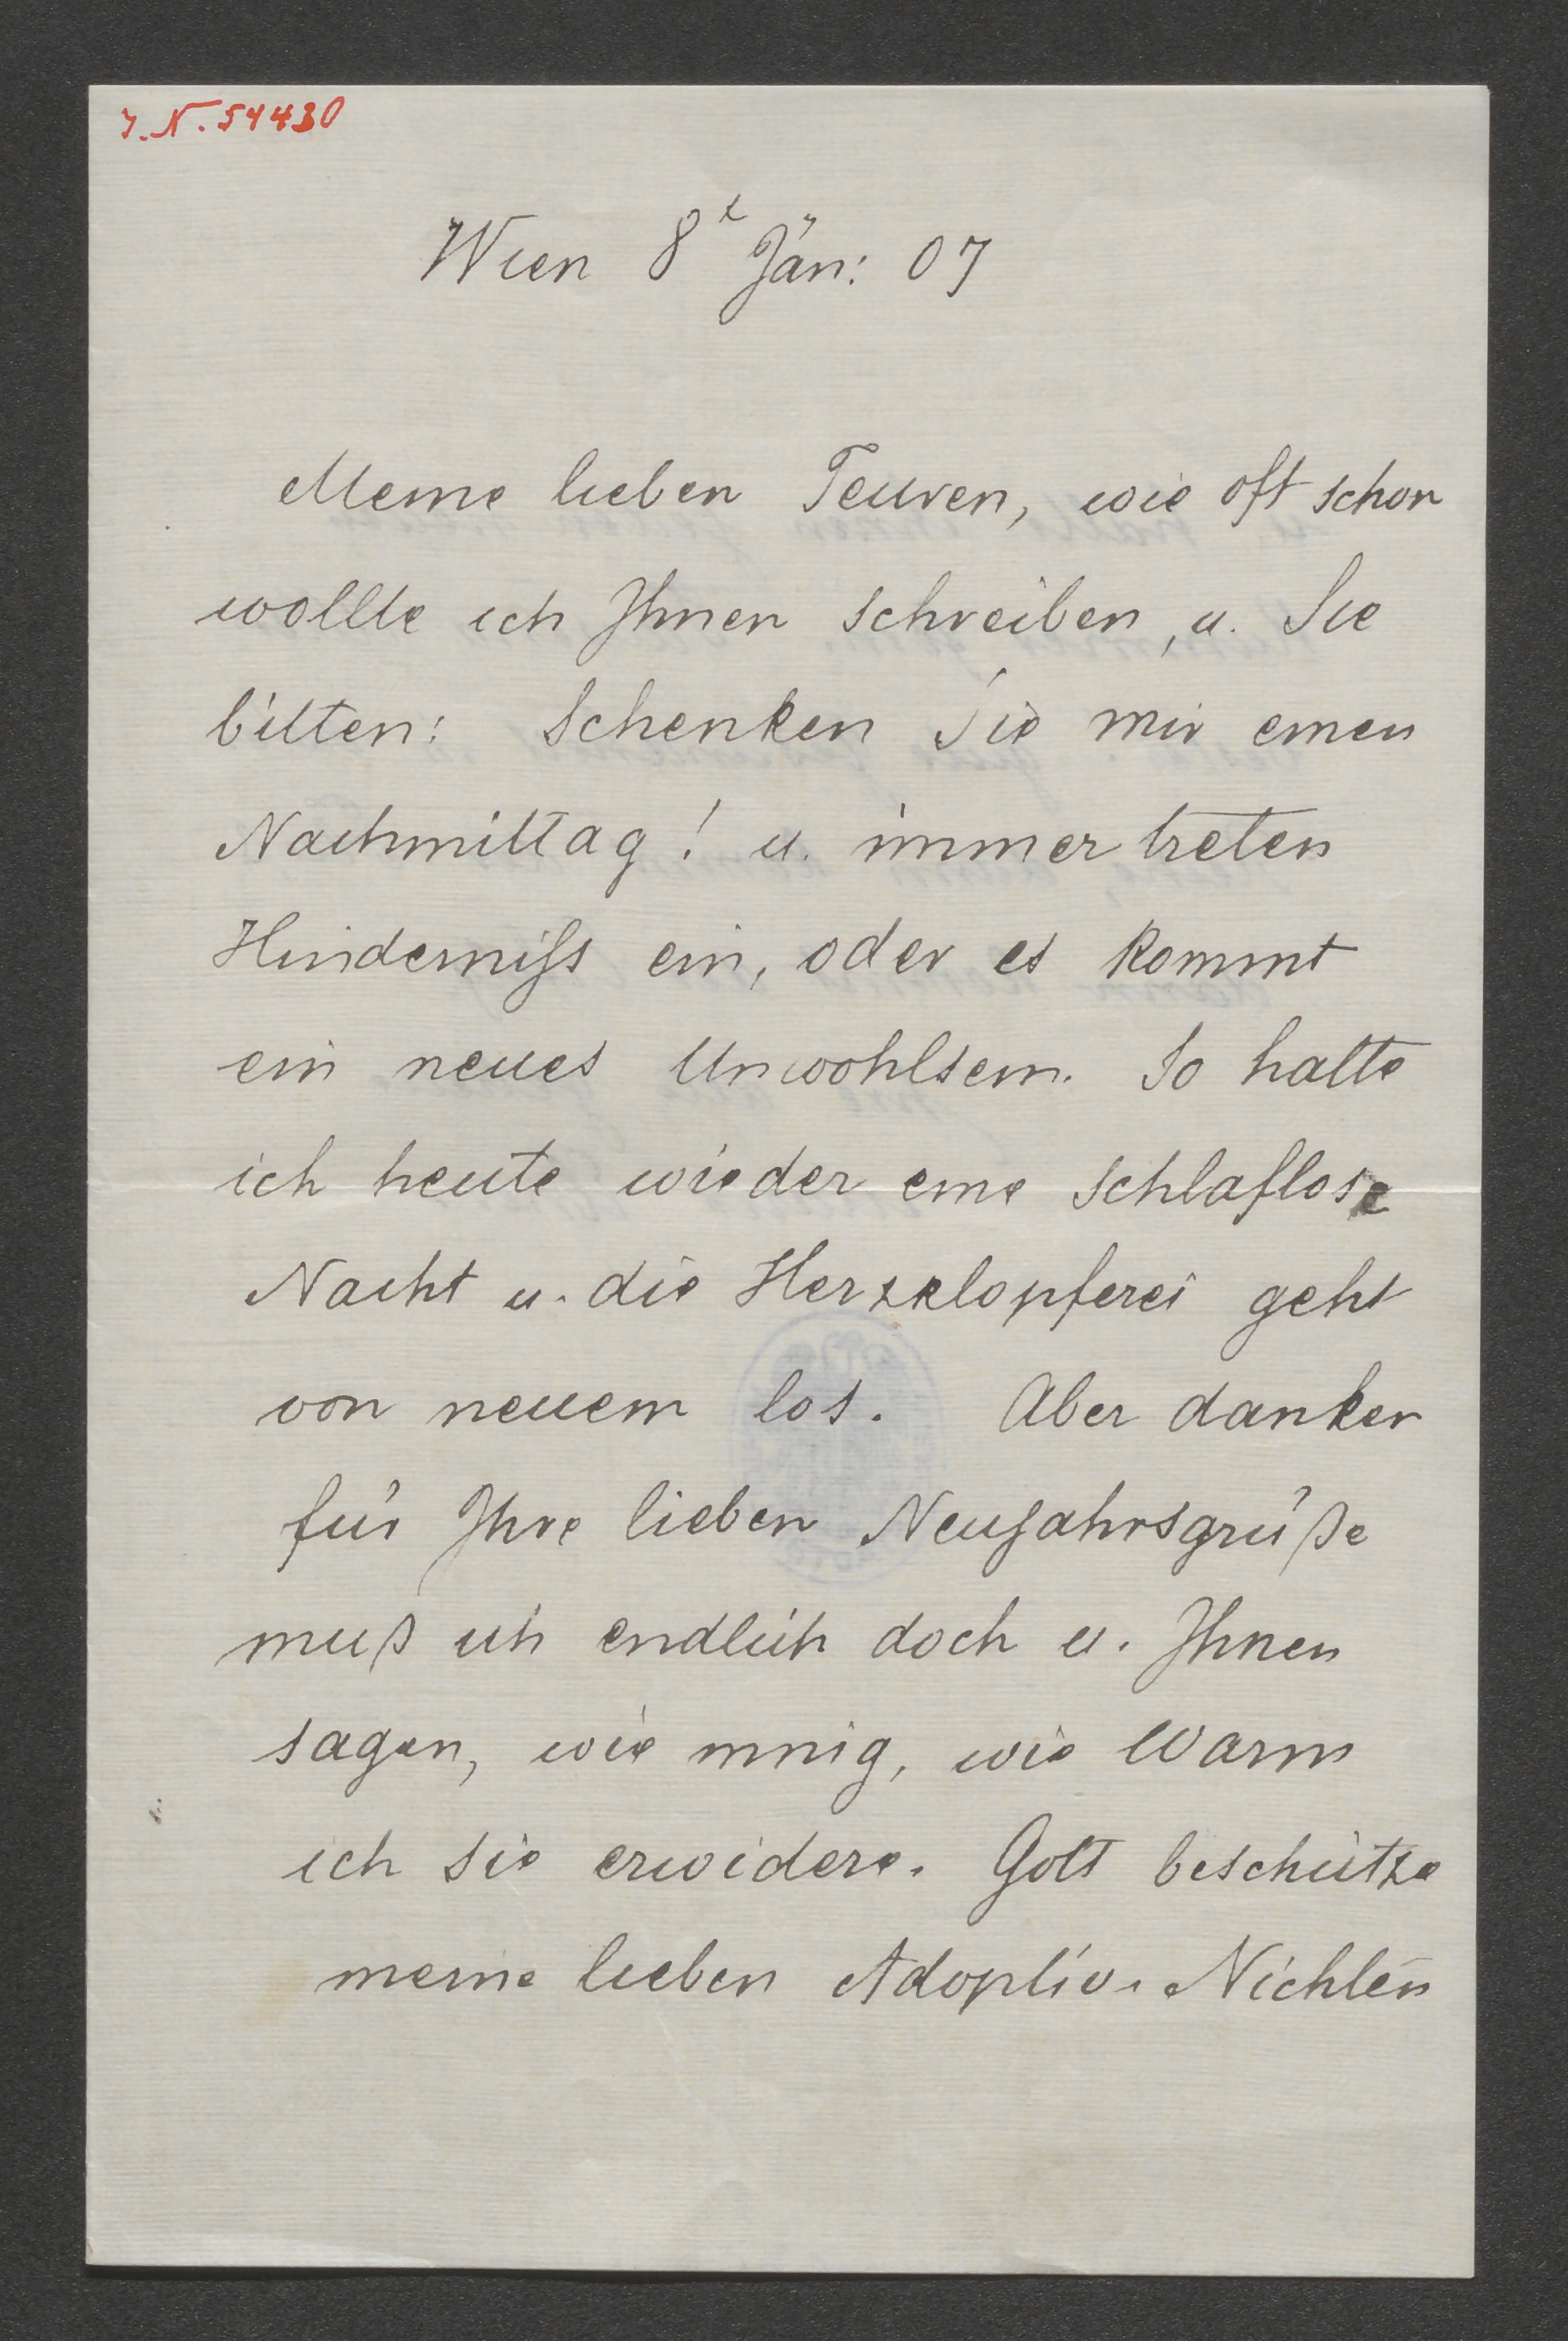 J.N. 54430
Wien 8t Jän: 07
Meine lieben Teuren, wie oft schon
wollte ich Ihnen schreiben, u. Sie
bitten: Schenken Sie mir einen
Nachmittag! u. immer treten
Hinderniſs ein, oder es kommt
ein neues Unwohlsein. So hatte
ich heute wieder eine schlaflose
Nacht u. die Herzklopferei geht
von neuem los. Aber danken
für Ihre lieben Neujahrsgrüße
muß ich endlich doch u. Ihnen
sagen, wie innig, wie warm
ich sie erwidere. Gott beschütze
meine lieben Adoptiv-Nichten